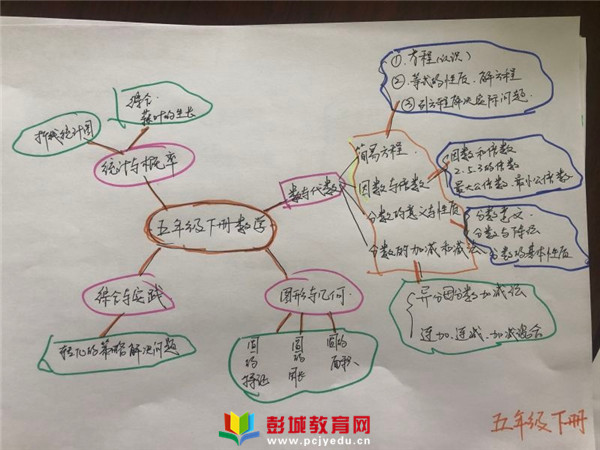 ①.方程(认识)
②.等式的性质、解方程
③列方程解决实际问题
综合
蒜叶的生长
折线统计图
统计与概率
数与代数
简易方程
因数与倍数
分数的意义与性质
分数的加减和减法
因数和倍数
2.5.3的倍数
最大公倍数.最小公倍数
分数意义
分数与除法
分数的基本性质
五年级下册数学
综合与实践
转化的策略解决问题
图形与几何
圆的特征
圆的周长
圆的面积
异分母分数加减法
连加、连减、加减混合
五年级下册
彭城教育网
www.pcjyedu.cn